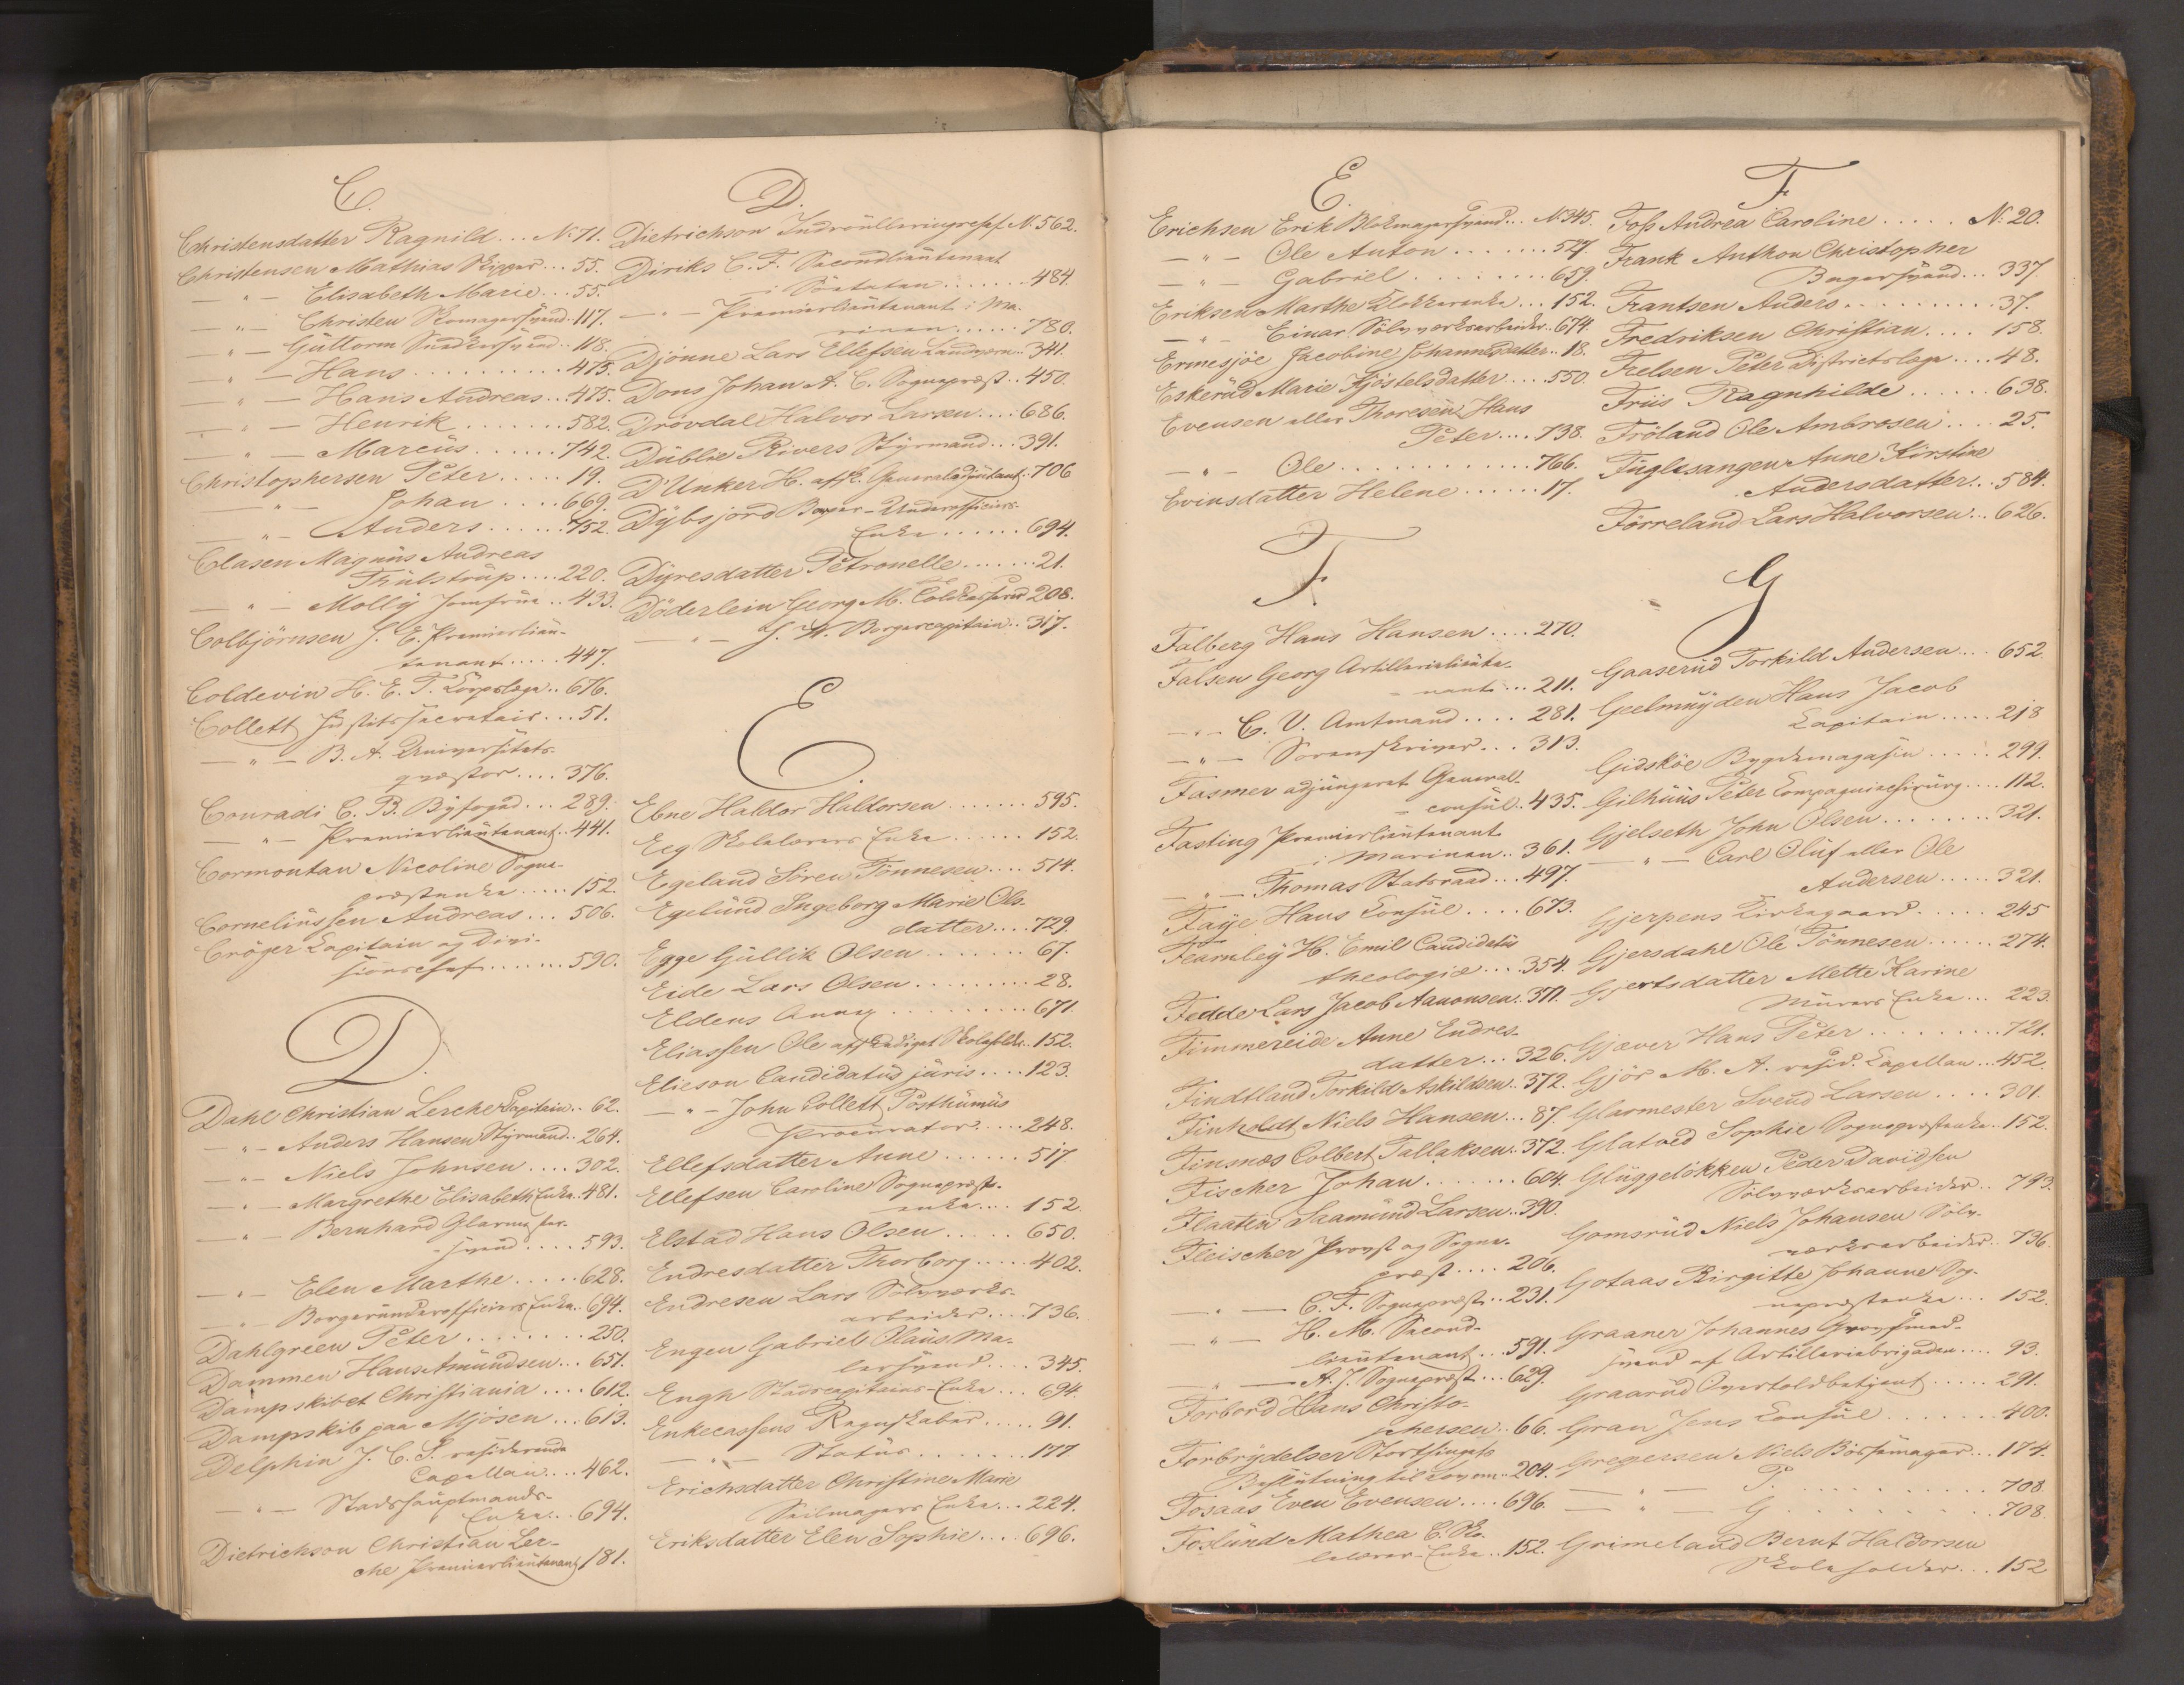 C.
Christensdatter Ragnild... N: 71.
Christensen Mathias Skipper... 55.
— " — Elisabeth Marie... 55.
— " — Christen Skomagersvend. 117.
— " — Güttorm Snedkersvend.. 118.
— " — Hans.......... 475.
— " — Hans Andreas... 475.
— " — Henrik....... 582.
— " — Marcüs...... 742.
Christophersen Peter..... 19.
— " — Johan.... 669.
— " — Anders...... 752.
Clasen Magnüs Andreas
Thülstrüp.... 220.
— " — Molly Jomfrüe.. 433.
Colbjörnsen J. E. Premierlieü-
tenant..... 447.
Coldevin H. E. T. Corpslæge.. 676.
Collett Jüstitssecretair... 51.
— " — B. A. Universitets-
qvæstor.... 376.
Conradi C. B. Byfoged... 289.
— " — Premierlieütenant.. 441.
Cormontan Nicoline Sogne-
præstenke..... 152.
Corneliüssen Andreas... 506.
Cröger Kapitain og Divi-
sionschef....... 590.
D.
Dahl Christian Lerche Kapitain.. 62.
— " — Anders Hansen Styrmand.. 264.
— " — Niels Johnsen.... 302.
— " — Margrethe Elisabeth Enke. 481.
— " — Bernhard Glarmester-
svend.... 593.
— " — Elen Marthe..... 628.
— " — Borgeründerofficiers Enke.. 694.
Dahlgreen Peter........ 250.
Dammen Hans Amündsen... 657.
Dampskibet Christiania.... 612.
Dampskib paa Mjösen... 613.
Delphin J. C. S. residerende
Capellan.... 462.
— " — Stadshaüptmands-
Enke... 694.
Dietrichson Christian Ler-
che Premierlieütenant 181.
D.
Dietrichson Indrüllleringschef. N. 562.
Diriks C. F. Secondlieütenant
i Söetaten....... 484.
— " — Premierlieütenant i Ma-
rinen...... 780.
Djönne Lars Ellefsen Landværn.. 341.
Dons Johan A. C. Sognepræst.. 450.
Drövdal Halvor Larsen.... 686.
Düblie Rivers Styrmand... 391.
D'Unker H. afsk. Generaladjütant. 706
Dybsjord Borger-Underofficiers-
Enke...... 694.
Dyresdatter Petronelle....... 21.
Döderlein Georg M. Toldkasserer 208.
— " — J. W. Borgercapitain.. 317.
E.
Ebne Haldor Haldorsen....... 595.
Eeg Skolelærers Enke...... 152.
Egeland Sören Tönnesen.... 514.
Egelünd Ingeborg Marie Ols-
datter.... 729.
Egge Güllik Olsen....... 67.
Eide Lars Olsen......... 28.
Eldens Anne......... 671.
Eliassen Ole afskediget Skoleholder.. 152.
Elieson Candidatüs jüris.... 123.
— " — John Collett Posthümüs
Procürator.... 248.
Ellefsdatter Anne...... 517
Ellefsen Caroline Sognepræst-
enke.... 152
Elstad Hans Olsen..... 650.
Endresdatter Thorborg..... 402.
Endresen Lars Sölvværks-
arbeider.... 736.
Engen Gabriel Klaüs Ma-
lersvend.... 345.
Engh Stadscapitains-Enke... 694.
Enkecassens Regnskaber..... 91.
— " — Statüs....... 177
Erichsdatter Christine Marie
Seilmagers Enke... 224.
Eriksdatter Elen Sophie.... 696.
E.
Erichsen Erik Blokmagersvend... N: 345.
— " — Ole Anton....... 527.
— " — Gabriel........ 659.
Eriksen Marthe Klokkerenke... 152.
— " — Einar Sölvværksarbeider.. 674.
Ermesjöe Jacobine Johannesdatter.. 18.
Eskerüd Marie Kjöstelsdatter.... 550.
Evensen eller Thoresen Hans
Peter.... 738.
— " — Ole............ 766.
Evinsdatter Helene...... 17.
F.
Falberg Hans Hansen.... 270.
Falsen Georg Artillerielieüte-
nant... 211.
— " — C. V. Amtmand.... 281.
— " — Sorenskriver... 313.
Fasmer adjüngeret General-
consül.. 435.
Fasting Premierlieütenant
i Marinen.. 361.
— " — Thomas Statsraad... 497.
Faye Hans Consül.... 673.
Fearnley H. Emil Candidatüs
theologiæ.... 354.
Fedde Lars Jacob Aanonsen. 371.
Fimmereide Anne Endres-
datter... 326.
Findtland Torkild Askildsen.. 372.
Finholdt Niels Hansen... 87.
Finsnes Colbert Tallaksen. 372.
Fischer Johan....... 604.
Flaaten Saamünd Larsen.. 390.
Fleischer Provst og Sogne-
præst.... 206.
— " — C. F. Sognepræst.. 231.
— " — H. M. Second-
lieütenant... 591.
— " — A. J. Sognepræst... 629.
Forbord Hans Christo-
phersen.. 66.
Forbrydelser Storthingets
Beslütning til Lovom.. 204.
Fosaas Even Evensen.... 696.
Foslünd Mathea C. Sko-
lelærer-Enke.. 152.
F
Foss Andrea Caroline..... N: 20.
Frank Anthon Christopher
Bagersvend... 337.
Frantsen Anders.......... 37.
Fredriksen Christian.... 158.
Frelsen Peter Districtslæge.... 48.
Friis Ragnhilde...... 638.
Fröland Ole Ambrosen.... 25.
Füglesangen Anne Kirstine
Andersdatter... 584.
Förreland Lars Halvorsen... 626.
G
Gaaserüd Torkild Andersen... 652.
Geelmüyden Hans Jacob
Kapitain..... 218
Gidsköe Bygdemagasin..... 299.
Gilhüüs Peter Compagniechirürg.... 112.
Gjelseth John Olsen........ 321.
— " — Carl Olüf eller Ole
Andersen..... 321.
Gjerpens Kirkegaard..... 245
Gjersdahl Ole Tönnesen...... 274.
Gjertsdatter Mette Karine
Mürers Enke... 223.
Gjæver Hans Peter......... 721.
Gjör M. A. resid. Kapellan... 452.
Glarmester Svend Larsen.... 301.
Glatved Sophie Sognepræstenke.. 152.
Glüggelökken Peder Davidsen
Sölvværksarbeider.. 793.
Gomsrüd Niels Johansen Sölv-
værksarbeider.. 736.
Gotaas Birgitte Johanne Sog-
nepræstenke... 152.
Graaner Johannes Grovsmed-
svend af Artilleriebrigaden.... 93.
Graarüd Overtoldbetjent..... 291.
Gran Jens Consül....... 400.
Gregersen Niels Bössemager... 174.
— " — P.......... 708.
— " — G.......... 708.
Grimeland Bernt Haldorsen
Skoleholder... 152